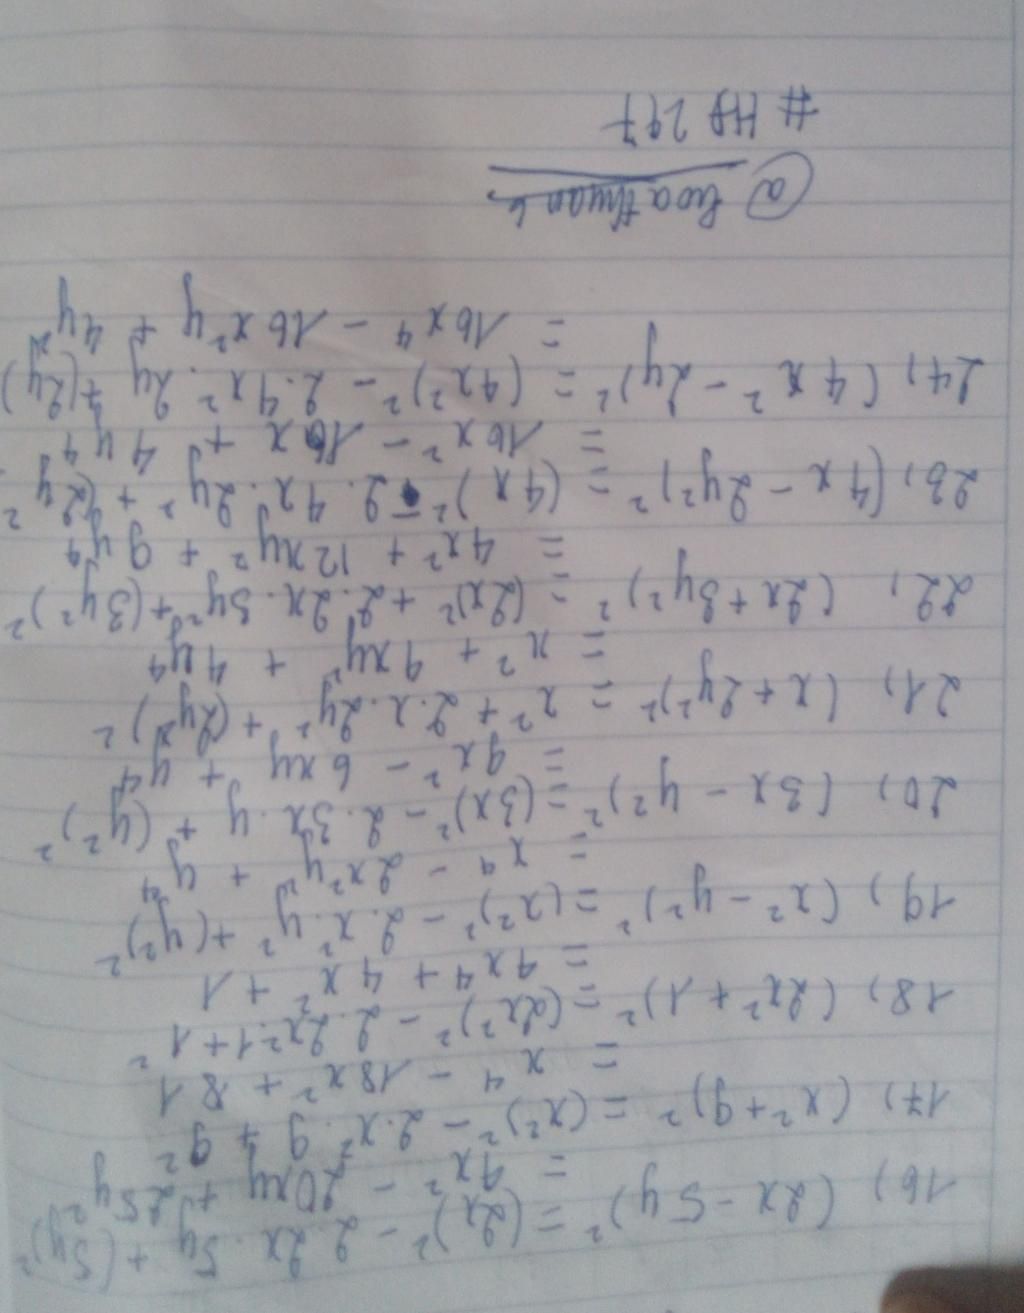 16) (2x - 5y)² = (2x)² - 2.2x.5y + (5y)²
= 4x² - 20xy + 25y²
17) (x² + 9)² = (x²)² - 2.x².9 + 9²
= x⁴ - 18x² + 81
18) (2x² + 1)² = (2x²)² - 2.2x².1 + 1²
= 4x⁴ + 4x² + 1
19) (x² - y²)² = (x²)² - 2.x².y² + (y²)²
= x⁴ - 2x²y² + y⁴
20) (3x - y²)² = (3x)² - 2.3x.y + (y²)²
= 9x² - 6xy + y⁴
21) (x + 2y²)² = x² + 2.x.2y² + (2y²)²
= x² + 4xy² + 4y⁴
22) (2x + 3y²)² = (2x)² + 2.2x.3y² + (3y²)²
= 4x² + 12xy² + 9y⁴
23) (4x - 2y²)² = (4x)² - 2.4x.2y² + (2y²
= 16x² - 16x + 4y⁴
24) (4x² - 2y)² = (4x²)² - 2.4x².2y + (2y)
= 16x⁴ - 16x²y + 4y²
# HD 297